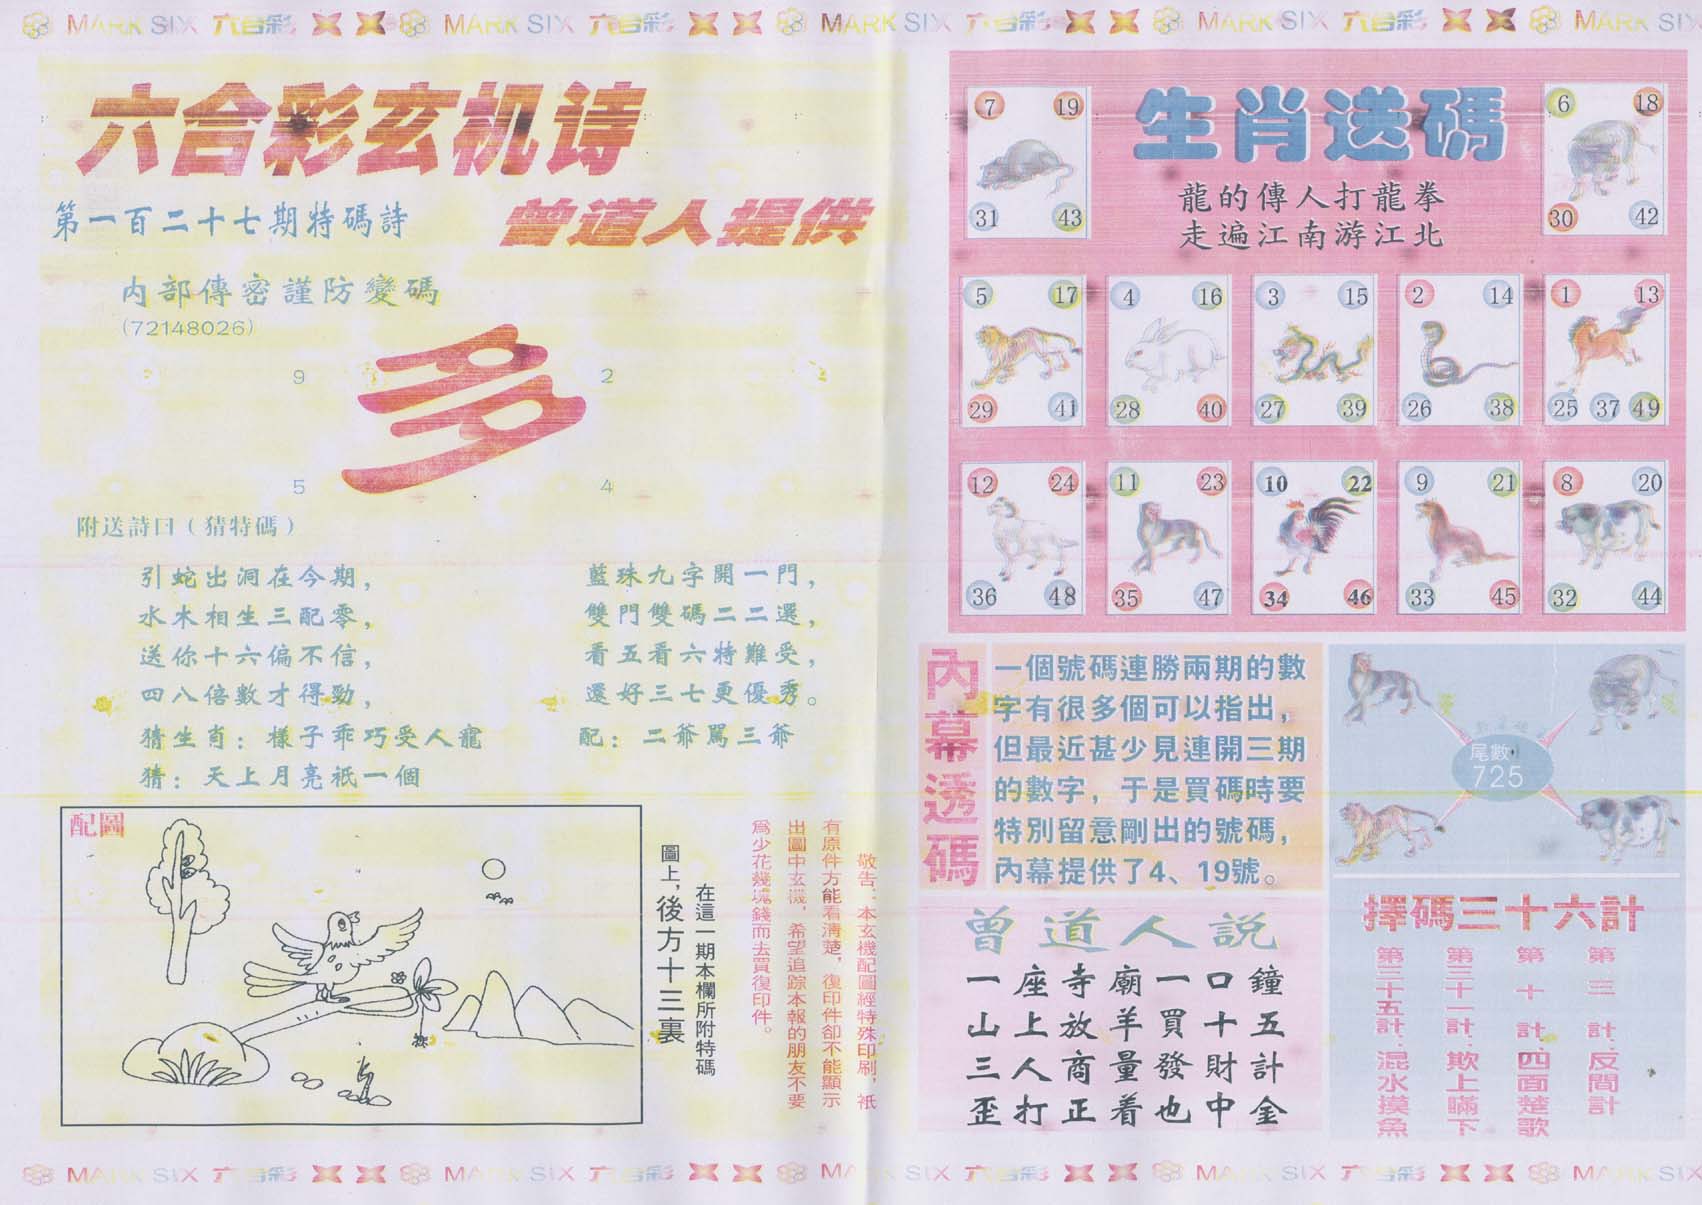 MARK SIX 六合彩 MARK SIX 六合彩 MARK SIX 六合彩 MARK SIX 六合彩 MARK SIX
六合彩玄机诗
第一百二十七期特碼詩
曾道人提供
內部傳密謹防變碼
(72148026)
9
2
多
5
4
附送詩曰（猜特碼）
引蛇出洞在今期，
水木相生三配零，
送你十六偏不信，
四八倍數才得勁，
藍珠九字開一門，
雙門雙碼二二選，
看五看六特難受，
還好三七更優秀。
猜生肖：樣子乖巧受人寵
配：二爺罵三爺
猜：天上月亮衹一個
配圖
在這一期本欄所附特碼
圖上，後方十三裏
敬告：本玄機配圖經特殊印刷，衹
有原件方能看清楚，復印件卻不能顯示
出圖中玄機，希望追踪本報的朋友不要
爲少花幾塊錢而去買復印件。
生肖送碼
龍的傳人打龍拳
走遍江南游江北
7 19
31 43
6 18
30 42
5 17
29 41
4 16
28 40
3 15
27 39
2 14
26 38
1 13
25 37 49
12 24
36 48
11 23
35 47
10 22
34 46
9 21
33 45
8 20
32 44
內幕透碼
一個號碼連勝兩期的數
字有很多個可以指出，
但最近甚少見連開三期
的數字，于是買碼時要
特別留意剛出的號碼，
內幕提供了4、19號。
尾數
725
曾道人説
一座寺廟一口鐘
山上放羊買十五
三人商量發財計
歪打正着也中金
擇碼三十六計
第三計：反間計
第十計：四面楚歌
第三十一計：欺上瞞下
第三十五計：混水摸魚
MARK SIX 六合彩 MARK SIX 六合彩 MARK SIX 六合彩 MARK SIX 六合彩 MARK SIX